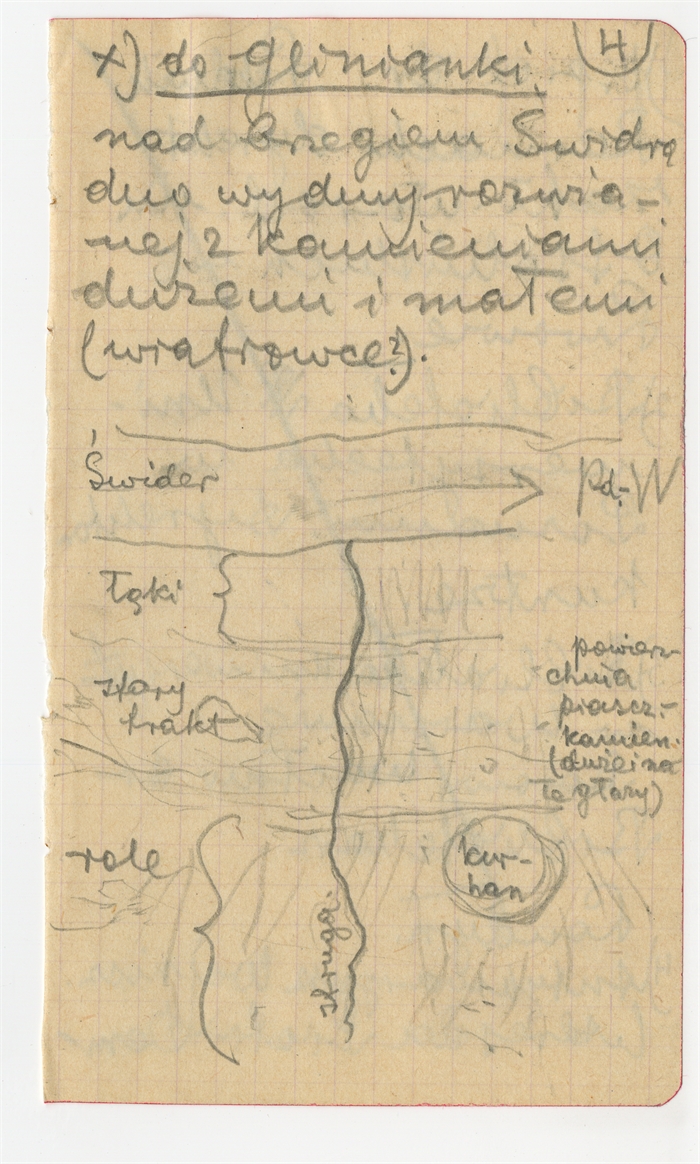 4
x) do Glinianki
nad brzegiem Świdra
dno wydmy rozwia-
nej z kamieniami
dużemi i małemi
(wiatrowce?).
Świder
Pd.-W
Łąki
stary
trakt
powierz-
chnia
piaszcz.-
kamien.
(duże i na
te głazy)
role
kur-
han
struga